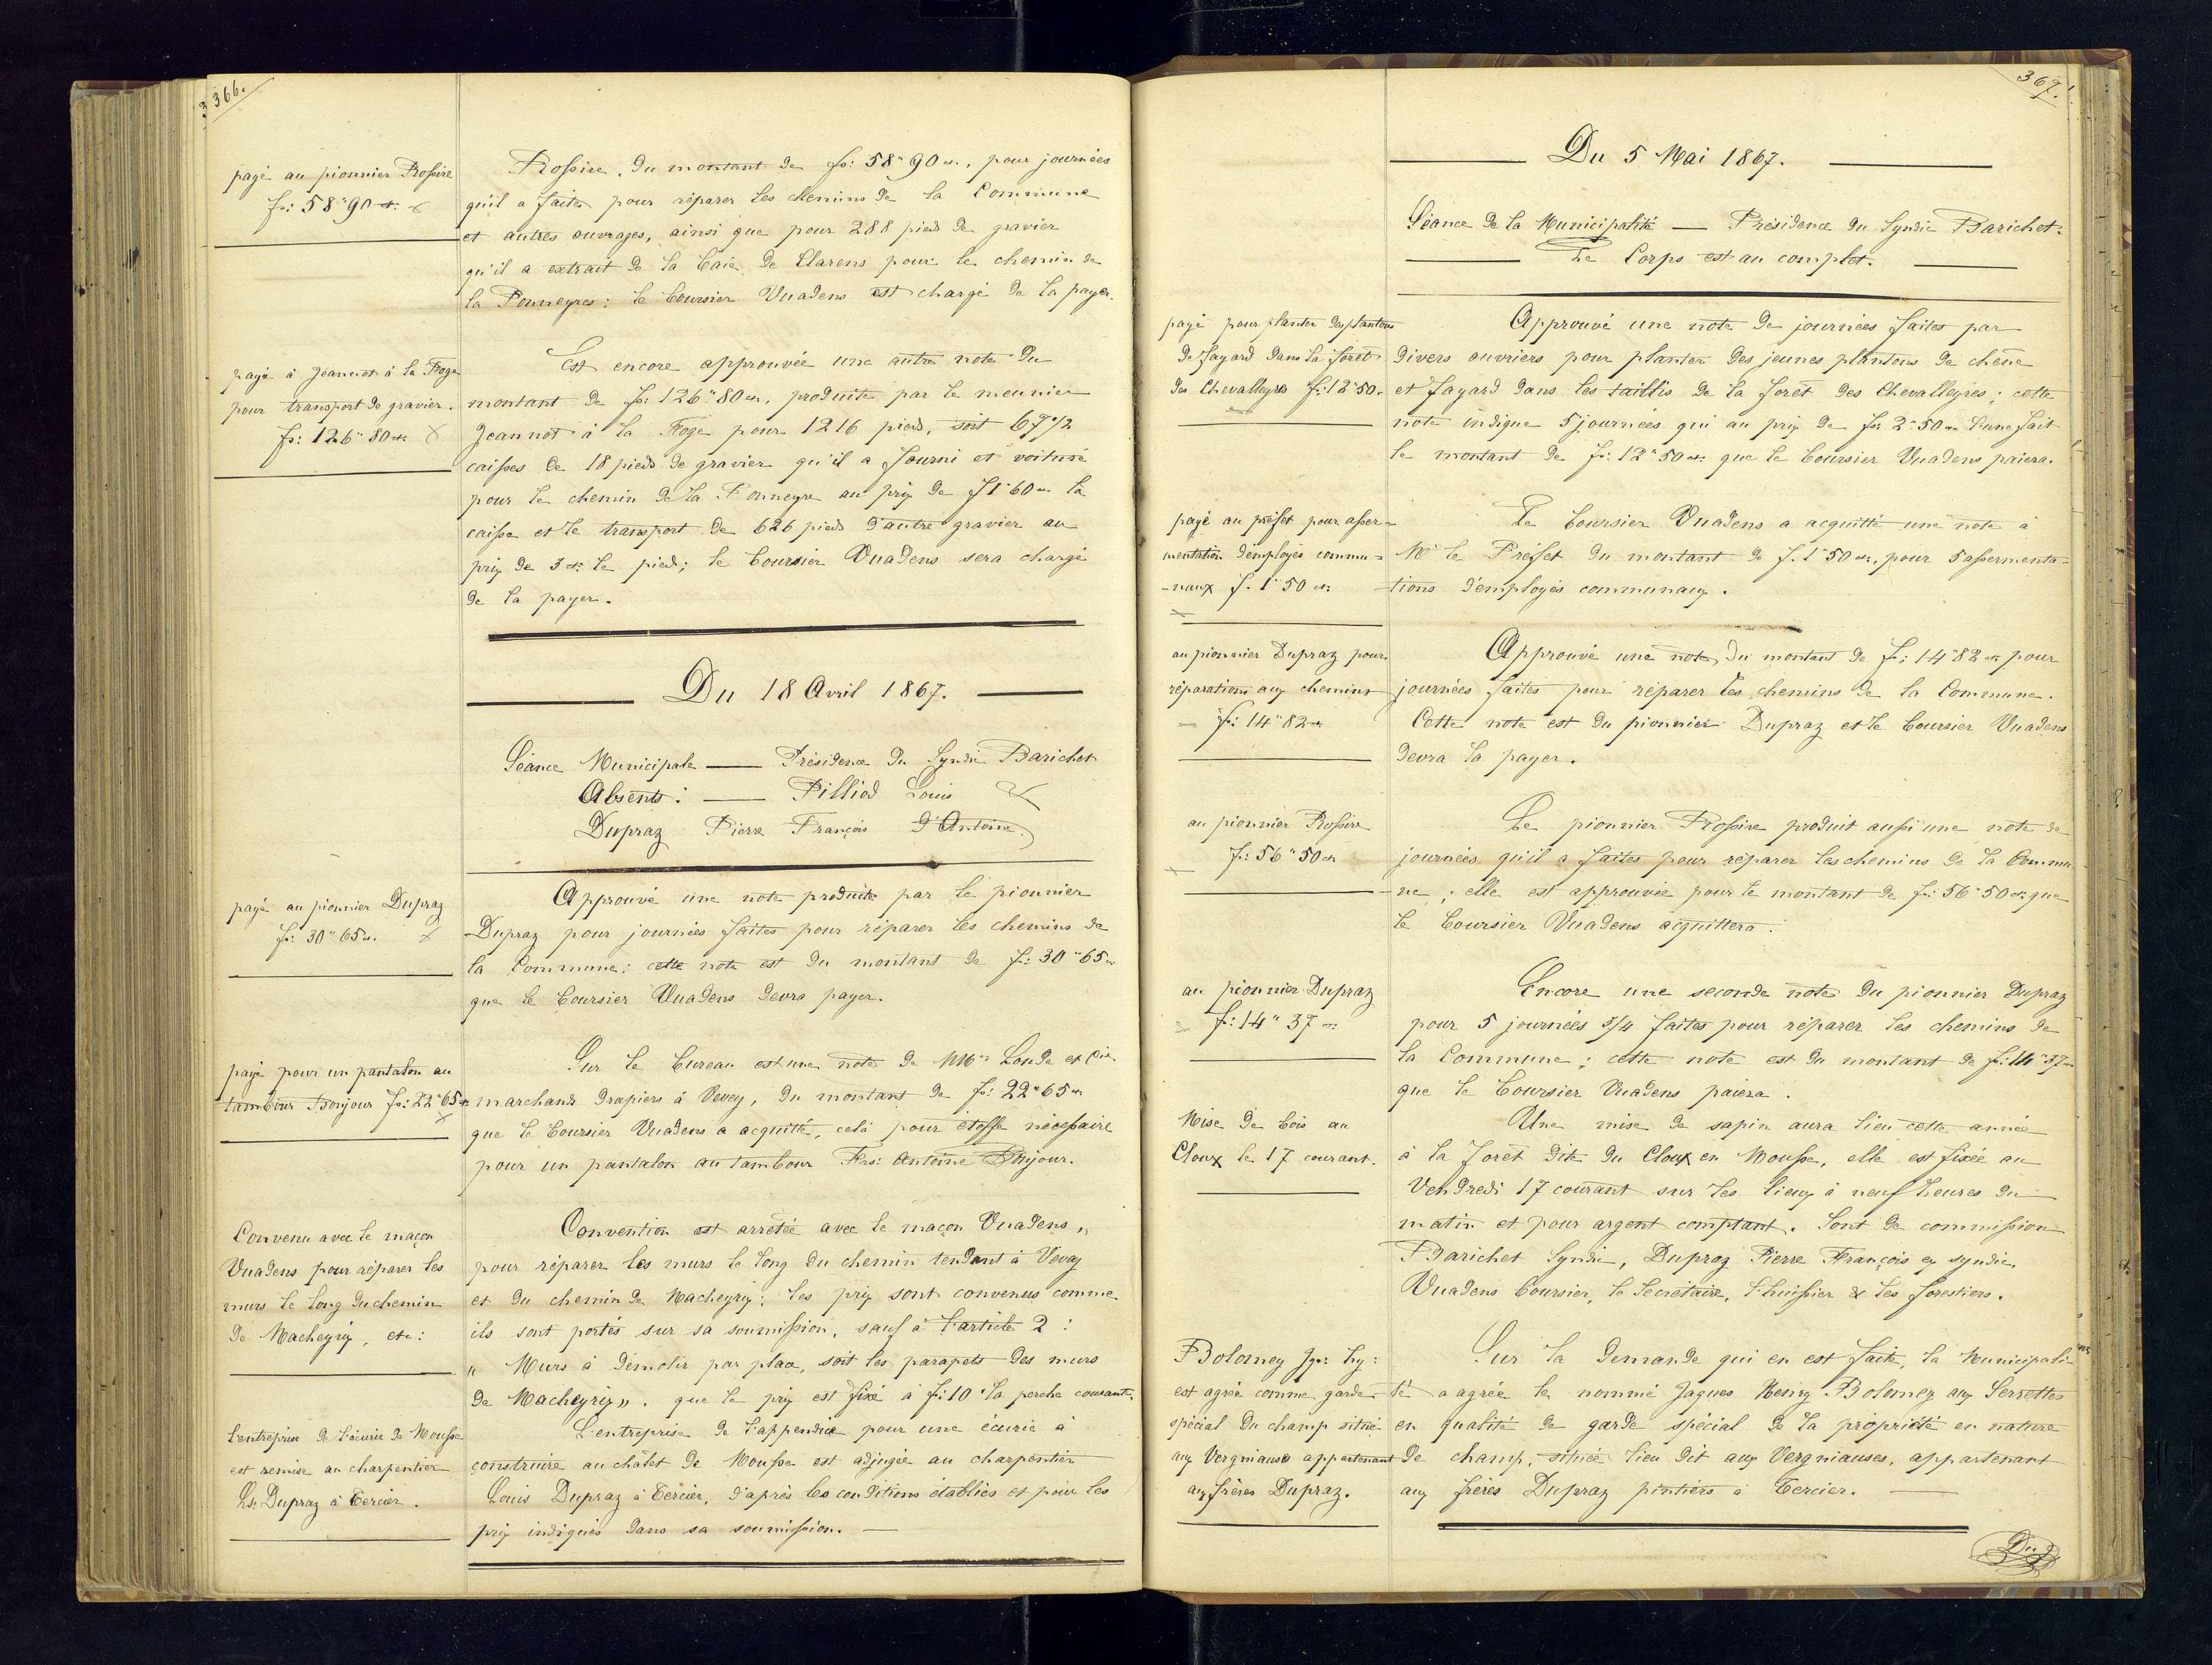 366.
payé au pionnier Rossire
fr: 58"90 cts:
Rossire, du montant de fr: 58"90 cts., pour journées
qu'il a faites pour réparer les chemins de la Commune
et autres ouvrages, ainsi que pour 288 pieds de gravier
qu'il a extrait de la baie de Clarens pour le chemin de
la Ponneyres; le boursier Vuadens est chargé de la payer.
payé à Jeannot à la Foge
pour transport de gravier.
fr: 126"80 cts
Est encore approuvée une autre note du
montant de fr: 126"80 cts, produite par le meunier
Jeannot à la Foge pour 1216 pieds, soit 67 1/2
caisses de 18 pieds de gravier qu'il a fourni et voituré
pour le chemin de la Ponneyre au prix de f 1"60 cts la
caisse et le transport de 626 pieds d'autre gravier au
prix de 3 cts: le pied; le boursier Vuadens sera chargé
de la payer.
Du 18 Avril 1867.
Séance Municipale — Présidence du Syndic Barichet
Absents: — Pilliod Louis &
Dupraz Pierre François d'Antoine.
payé au pionnier Dupraz
fr: 30"65 cts.
Approuvé une note produite par le pionnier
Dupraz pour journées faites pour réparer les chemins de
la Commune; cette note est du montant de f: 30"65 cts
que le boursier Vuadens devra payer.
payé pour un pantalon au
tambour Bonjour fr: 22"65 cts
Sur le bureau est une note de MMrs Londe et Cie
marchands drapiers à Vevey, du montant de fr: 22"65 cts
que le boursier Vuadens a acquitté, celà pour étoffe nécessaire
pour un pantalon au tambour Frs: Antoine Bonjour.
Convenu avec le maçon
Vuadens pour réparer les
murs le long du chemin
de Macheyrix, etc:
Convention est arrêtée avec le maçon Vuadens,,
pour réparer les murs le long du chemin tendant à Vevey
et du chemin de Macheyrix; les prix sont convenus comme
ils sont portés sur sa soumission, sauf à l'article 2:
„ Murs à démolir par place, soit les parapets des murs
de Macheyrix„. que le prix est fixé à fr: 10 " la perche courante.
L'entreprise de l'écurie de Mousse
est remise au charpentier
Ls: Dupraz à Tercier.
L'entreprise de l'appendice pour une écurie à
construire au châlet de Mousse est adjugée au charpentier
Louis Dupraz à Tercier, d'après les conditions établies et pour les
prix indiqués dans sa soumission. —
367.
Du 5 Mai 1867.
Séance de la Municipalité — Présidence du Syndic Barichet.
Le Corps est au complet.
payé pour planter des plantons
de fayard dans la forêt
des Chevalleyres fr: 12"50.
Approuvé une note de journées faites par
divers ouvriers pour planter des jeunes plantons de chêne
et fayard dans les taillis de la forêt des Chevalleyres; cette
note indique 5 journées qui au prix de fr. 2"50 cts l'une fait
le montant de fr: 12"50 cts: que le boursier Vuadens paiera.
payé au préfet pour asser=
mentation d'employés commu=
-naux f. 1"50 cts
Le boursier Vuadens a acquitté une note à
Mr le Préfet du montant de f. 1"50 cts, pour 5 assermenta-
tions d'employés communaux.
au pionnier Dupraz pour
réparations aux chemins
fr: 14"82 cts
Approuvé une note, du montant de fr: 14"82 cts pour
journées faites pour réparer les chemins de la Commune.
Cette note est du pionnier Dupraz et le boursier Vuadens
devra la payer.
au pionnier Rossire
fr: 56"50 cts
Le pionnier Rossire produit aussi une note de
journées qu'il a faites pour réparer les chemins de la Commu-
-ne; elle est approuvée pour le montant de fr: 56"50 cts que
le boursier Vuadens acquittera.
au pionnier Dupraz
fr: 14"37 cts
Encore une seconde note du pionnier Dupraz
pour 5 journées 3/4 faites pour réparer les chemins de
la Commune; cette note est du montant de fr: 14"37 cts
que le boursier Vuadens paiera.
Mise de bois au
Cloux le 17 courant.
Une mise de sapin aura lieu cette année
à la forêt dite du Cloux en Mousse, elle est fixée au
Vendredi 17 courant sur les lieux à neuf heures du
matin et pour argent comptant. Sont de commission
Barichet Syndic, Dupraz Pierre François ex syndic,
Vuadens boursier, le secrétaire, l'huissier & les forestiers.
Bolomey Jqs: Hy:
est agréé comme garde
spécial du champ situé
aux Vergniauses appartenant
aux frères Dupraz.
Sur la demande qui en est faite, la Municipali-
té a agréé le nommé Jaques Henry Bolomey aux Serrettes
en qualité de garde spécial de la propriété en nature
de champ, située lieu dit aux Vergniauses, appartenant
aux frères Dupraz pintiers à Tercier. —